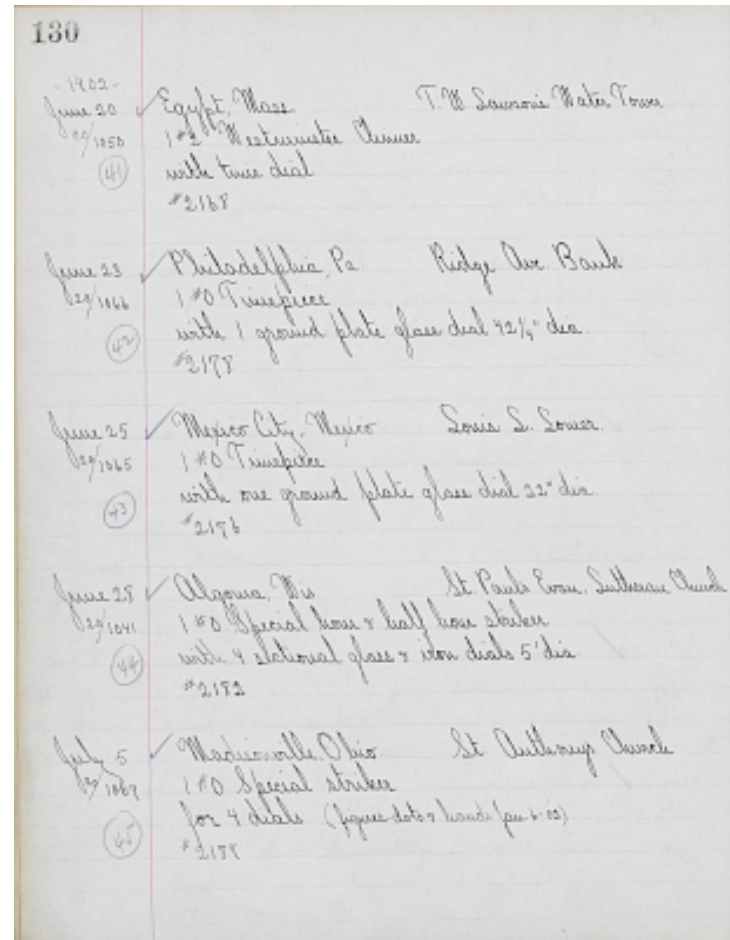 130
- 1902 -
June 20 ✓ Egypt, Mass. T. W. Lawson's Water Tower
1050 1 #2 Westminster Chimer
41 with time dial
#2168
June 23 ✓ Philadelphia, Pa. Ridge Ave. Bank
1066 1 #0 Timepiece
42 with 1 ground plate glass dial 42¼" dia.
June 25 ✓ Mexico City, Mexico
1065 1 #0 Timepiece
43 with one ground plate glass dial 22" dia
June 28 ✓ Algoma, Wis St. Pauls Evan. Lutheran Church
1041 1 #0 Special hour & half hour striker
44 with 4 sectional glass & iron dials 5' dia
#2182
July 5 ✓ Madisonville, Ohio St. Anthonys Church
1 #0 Special striker
45 for 4 dials (figures dots & hands